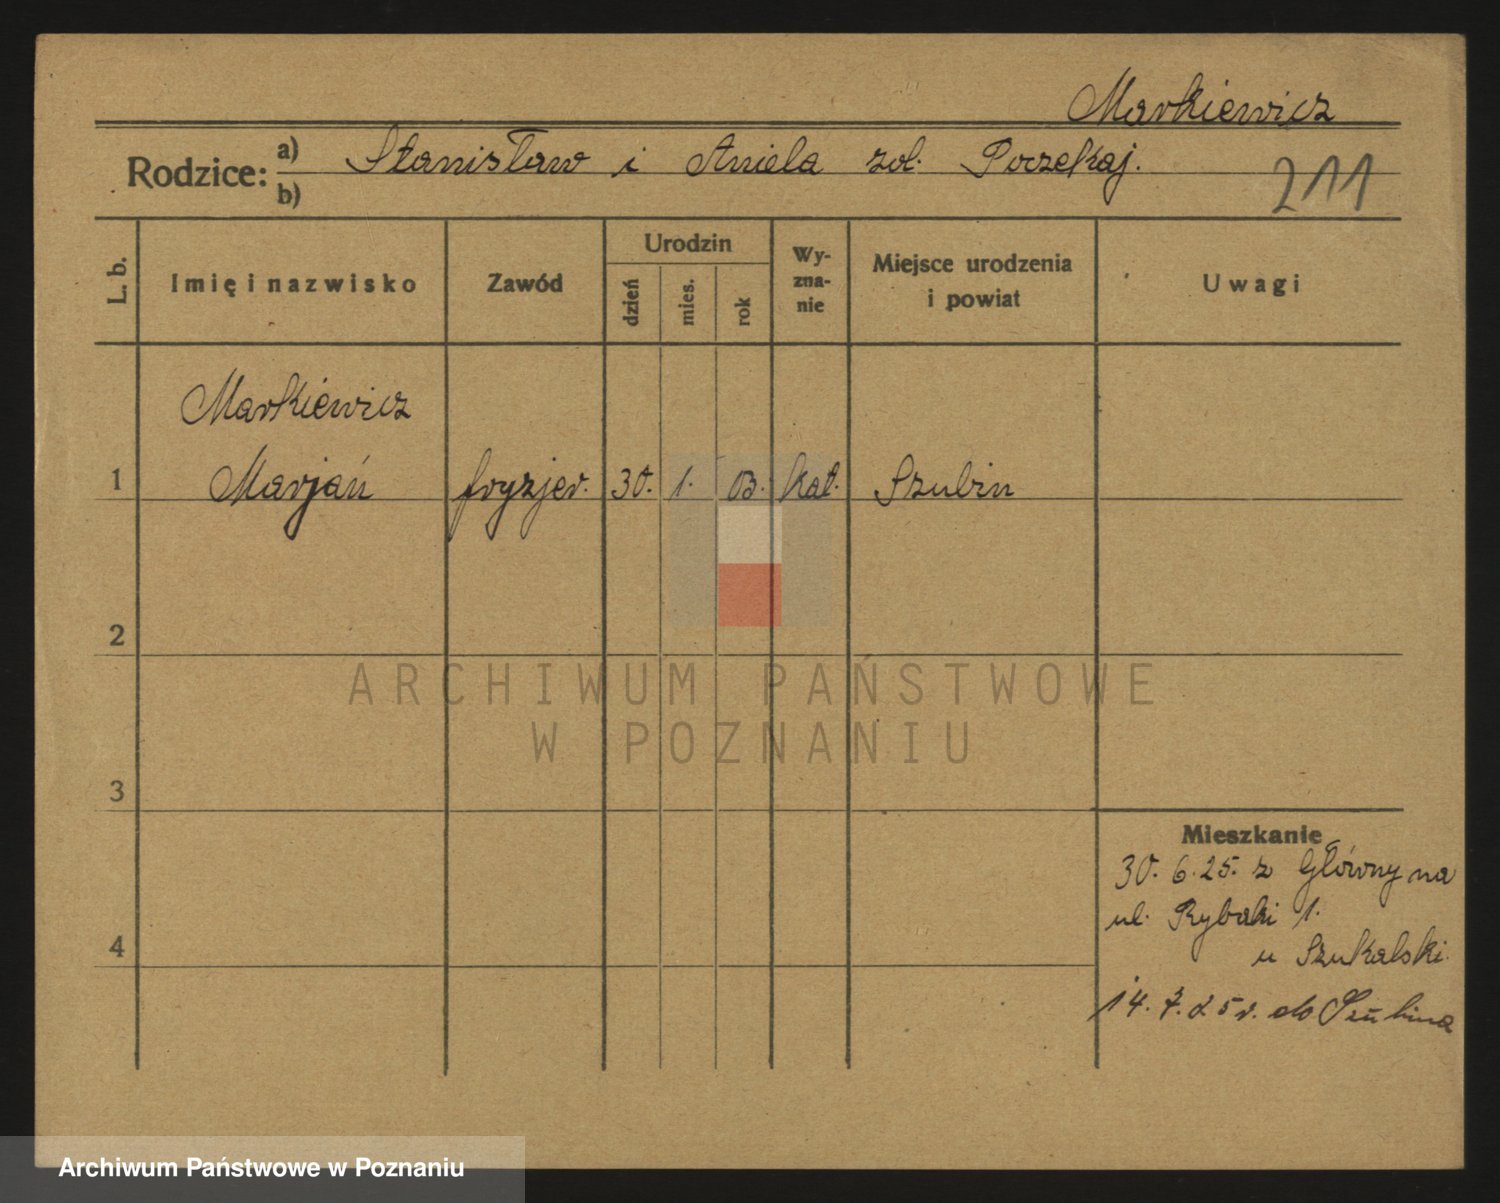 Markiewicz
Rodzice: a) Stanisław i Aniela zol. Poczekaj.
b)
211
L. b.
Imię i nazwisko
Zawód
Urodzin
dzień
mies.
rok
Wy-
zna-
nie
Miejsce urodzenia
i powiat
Uwagi
Markiewicz
1 Marjań fryzjer. 30. 1. 03. kat. Szubin
2
3
4
Mieszkanie
30. 6. 25. z Główny na
ul. Rybaki 1.
u Szukalski.
14. 7. 25 r. do Szubina
ARCHIWUM PAŃSTWOWE
W POZNANIU
Archiwum Państwowe w Poznaniu